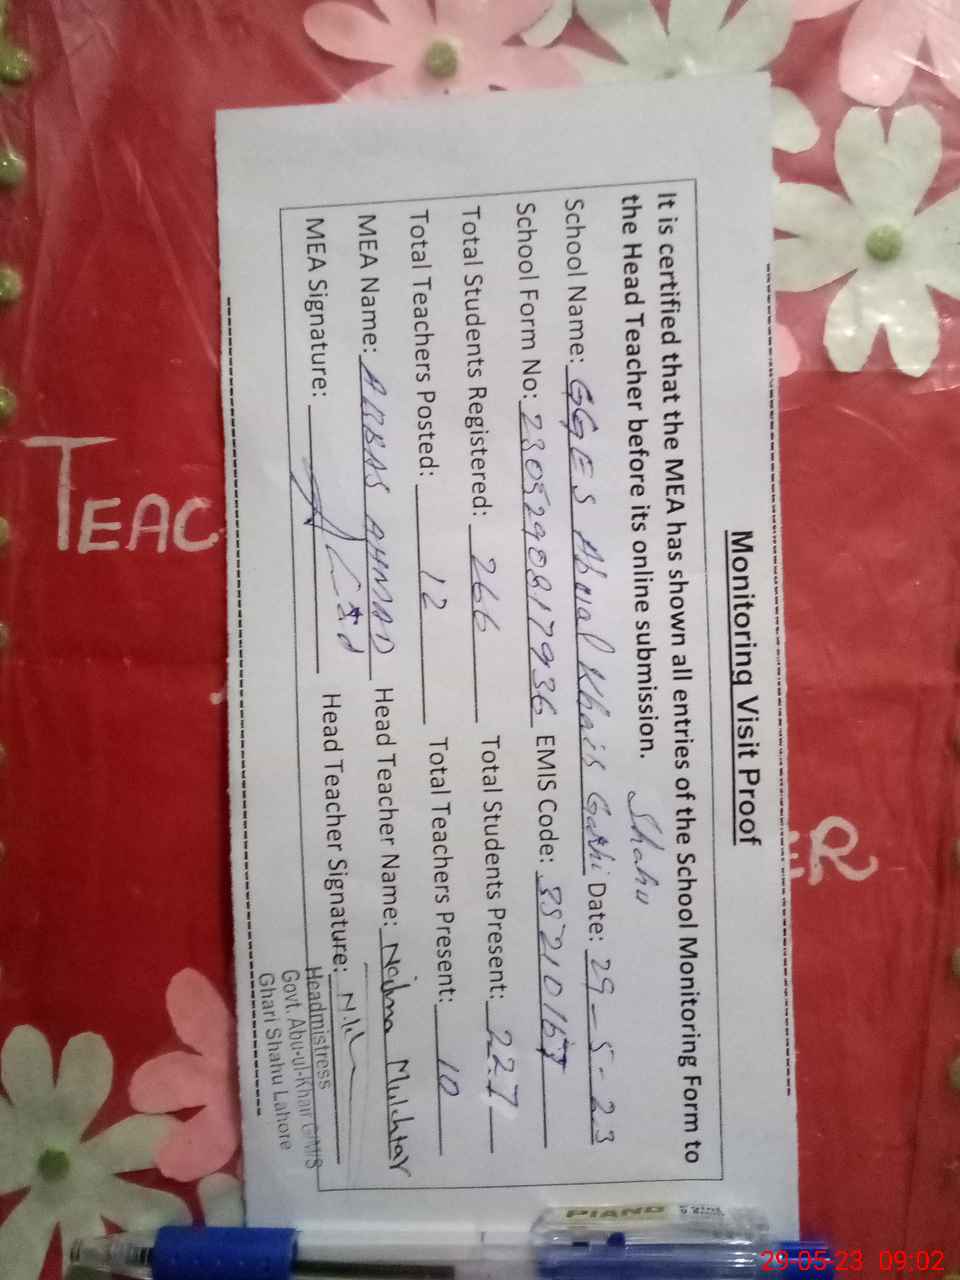 Monitoring Visit Proof
It is certified that the MEA has shown all entries of the School Monitoring Form to
the Head Teacher before its online submission.
Shahu
School Name: GGES Abual Khair Garhi Date: 29-5-23
School Form No: 23052908217936 EMIS Code: 35210167
Total Students Registered: 266 Total Students Present: 227
Total Teachers Posted: 12 Total Teachers Present: 10
MEA Name: ABBAS AHMAD Head Teacher Name: Najma Mukhtar
MEA Signature: Head Teacher Signature:
Headmistress
Govt. Abu-ul-Khair G/M/S
Ghari Shahu Lahore
TEAC
ER
PIANO
29-05-23 09:02